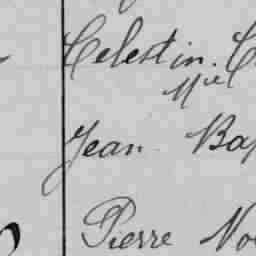 Celestin. C
Mel
Jean Bap
Pierre No